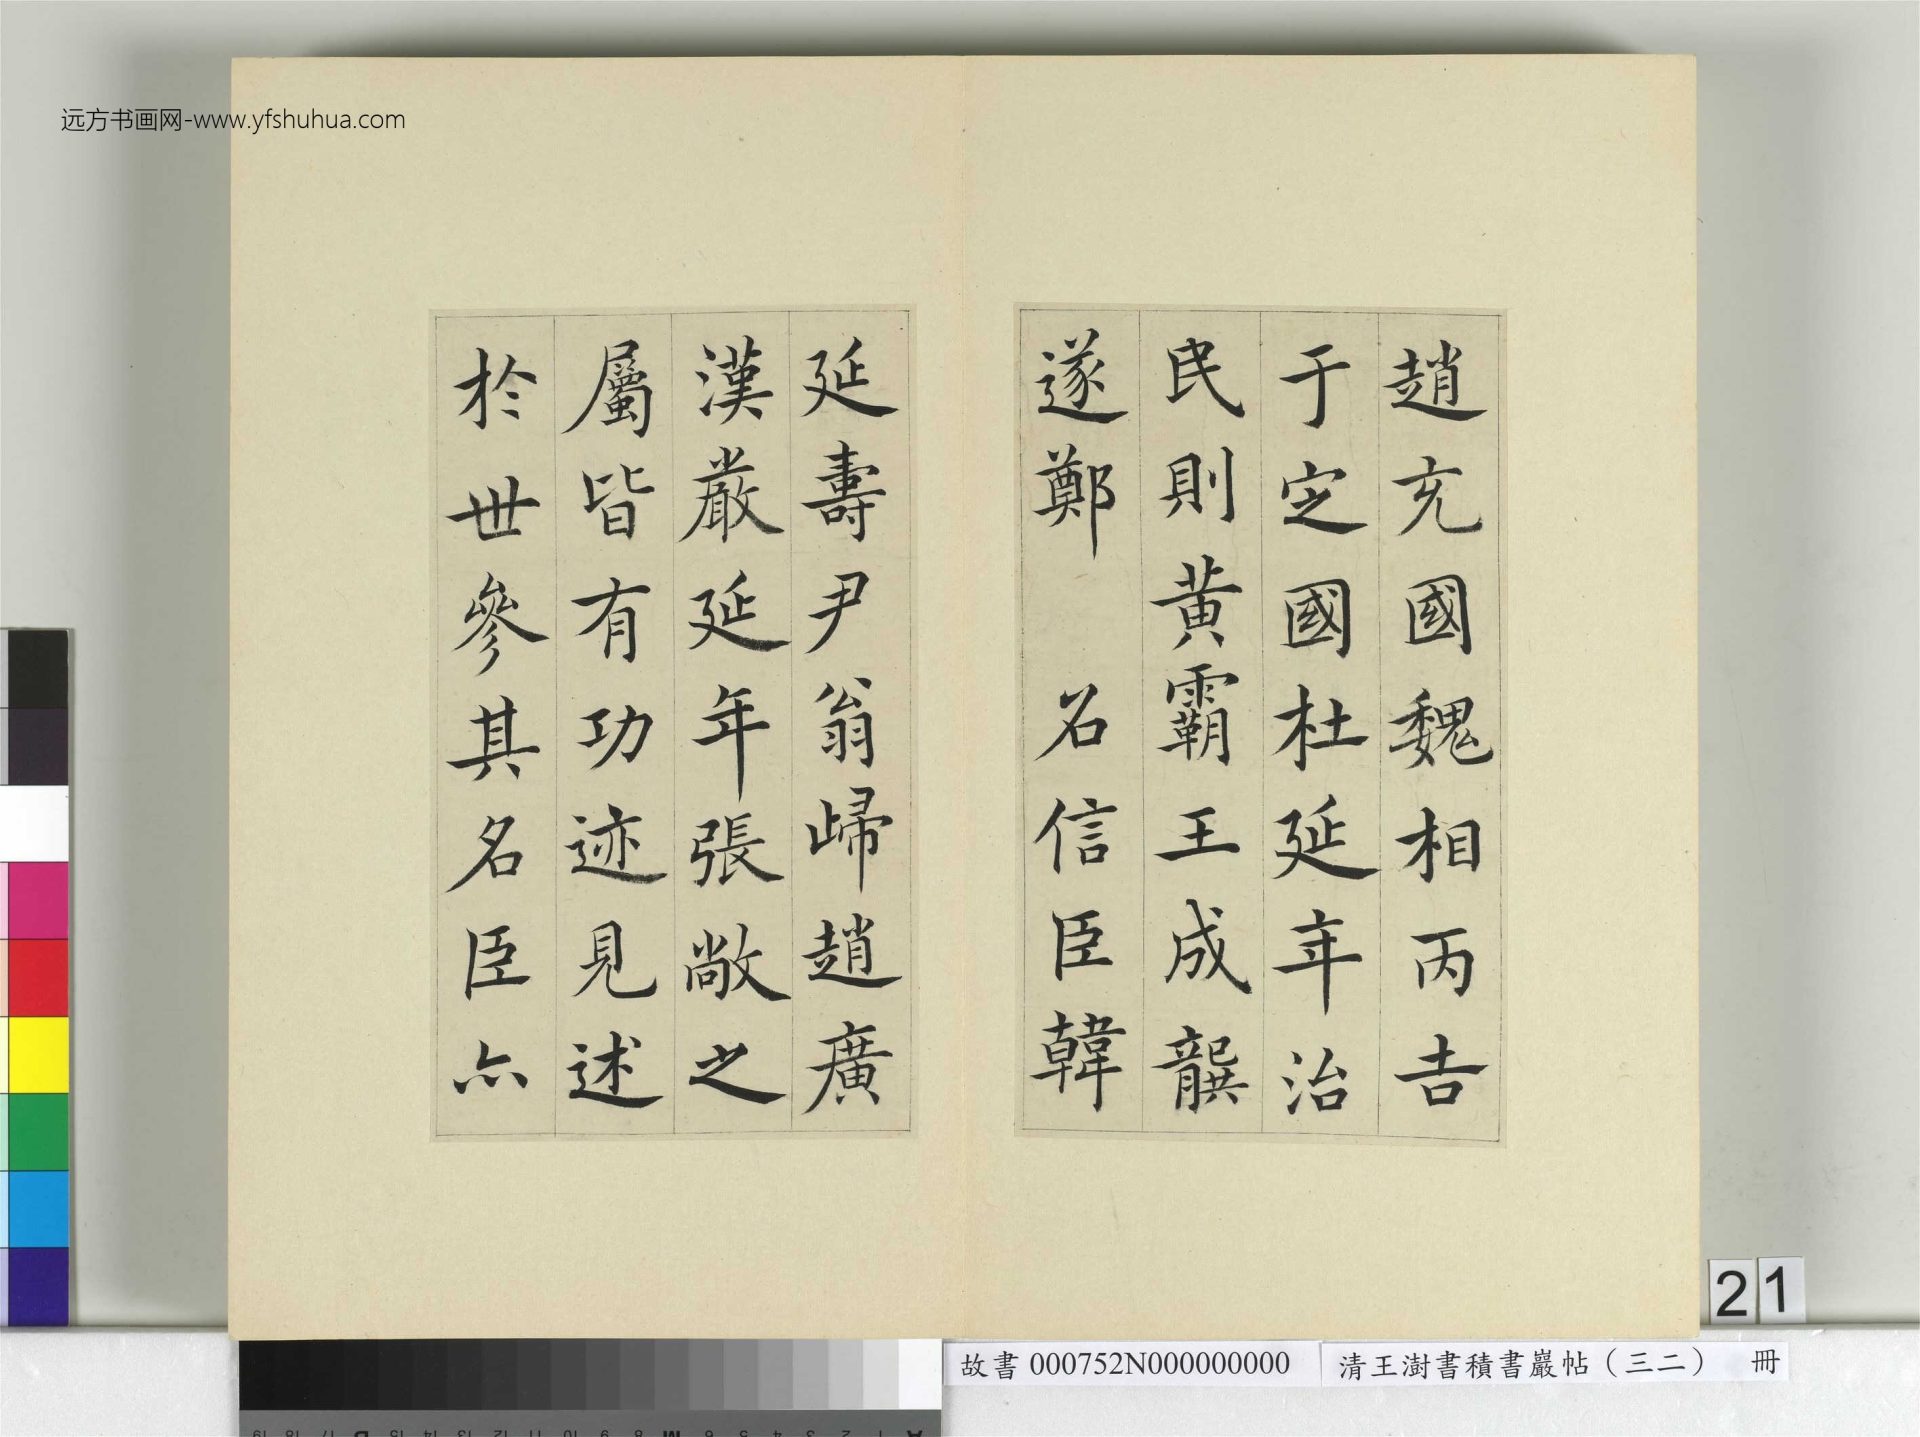 远方书画网-www.yfshuhua.com
趙充國魏相丙吉
于定國杜延年治
民則黃霸王成龔
遂鄭 召信臣韓
延壽尹翁歸趙廣
漢嚴延年張敞之
屬皆有功迹見述
於世參其名臣亦
21
故書 000752N000000000
清王澍書積書巖帖（三二） 冊